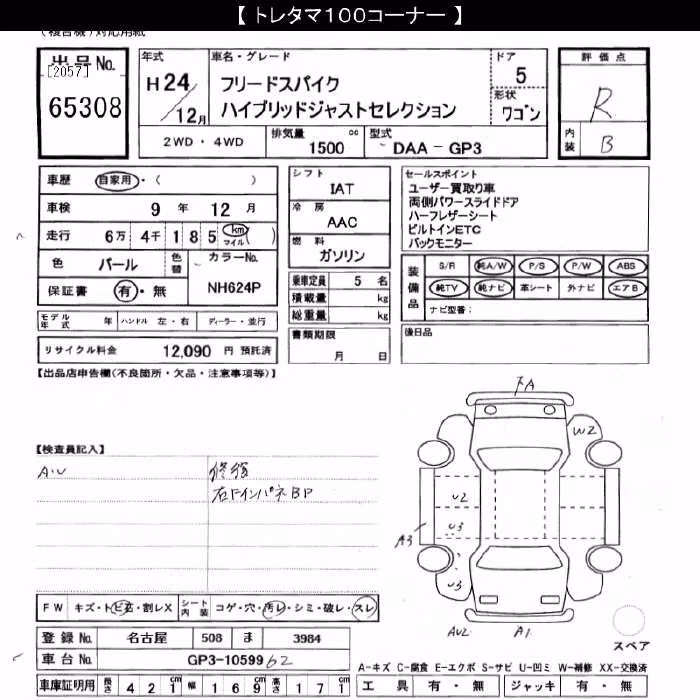 【 トレタマ100コーナー 】
(複合機)対応用紙
出品No.
[2057]
65308
年式
H24/12月
車名・グレード
フリードスパイク
ハイブリッドジャストセレクション
ドア
5
形状
ワゴン
評価点
R
内装
B
2WD ・ 4WD
排気量
1500 cc
型式
DAA－GP3
車歴 自家用・( )
車検 9 年 12 月
走行 6万 4千 1 8 5 km マイル ( )
色 パール 色替
カラーNo.
NH624P
保証書 有・無
シフト
IAT
冷房
AAC
燃料
ガソリン
乗車定員 5 名
積載量 kg
総重量 kg
書類期限
月 日
セールスポイント
ユーザー買取り車
両側パワースライドドア
ハーフレザーシート
ビルトインETC
バックモニター
装備品
S/R 純A/W P/S P/W ABS
純TV 純ナビ 革シート 外ナビ エアB
ナビ型番：
後日品
モデル年式 年 ハンドル 左・右 ディーラー・並行
リサイクル料金 12,090 円 預託済
【出品店申告欄(不良箇所・欠品・注意事項等)】
【検査員記入】
A・U
修復
右ドインパネBP
下A
W2
U2
U3
A3
U3
AU2
A1
スペア
FW キズ・トビ石・割レX
シート内装 コゲ・穴・汚レ・シミ・破レ・スレ
登録No. 名古屋 508 ま 3984
車台No. GP3-1059962
A－キズ C－腐食 E－エクボ S－サビ U－凹ミ W－補修 XX－交換済
車庫証明用 長さ 4 2 1 cm 幅 1 6 9 cm 高さ 1 7 1 cm
工具 有・無 ジャッキ 有・無